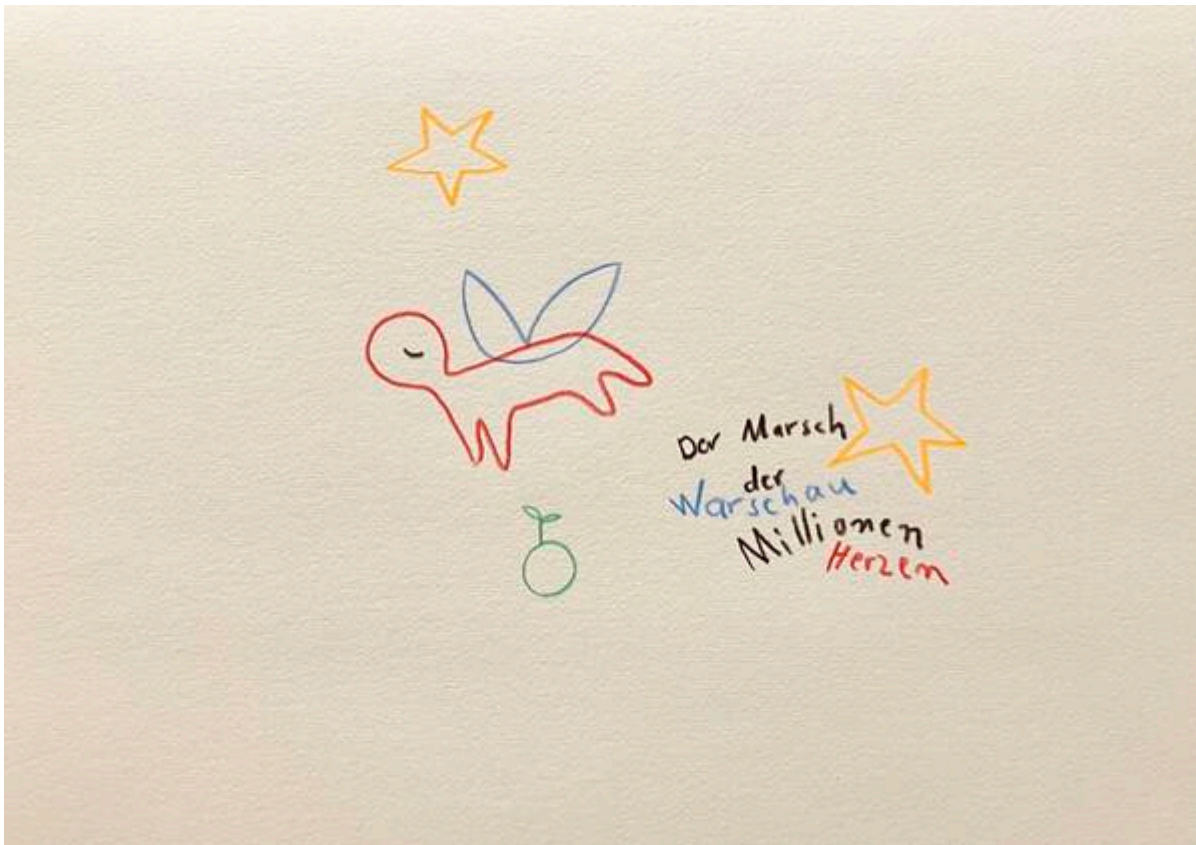 Der Marsch
der
Warschau
Millionen
Herzen